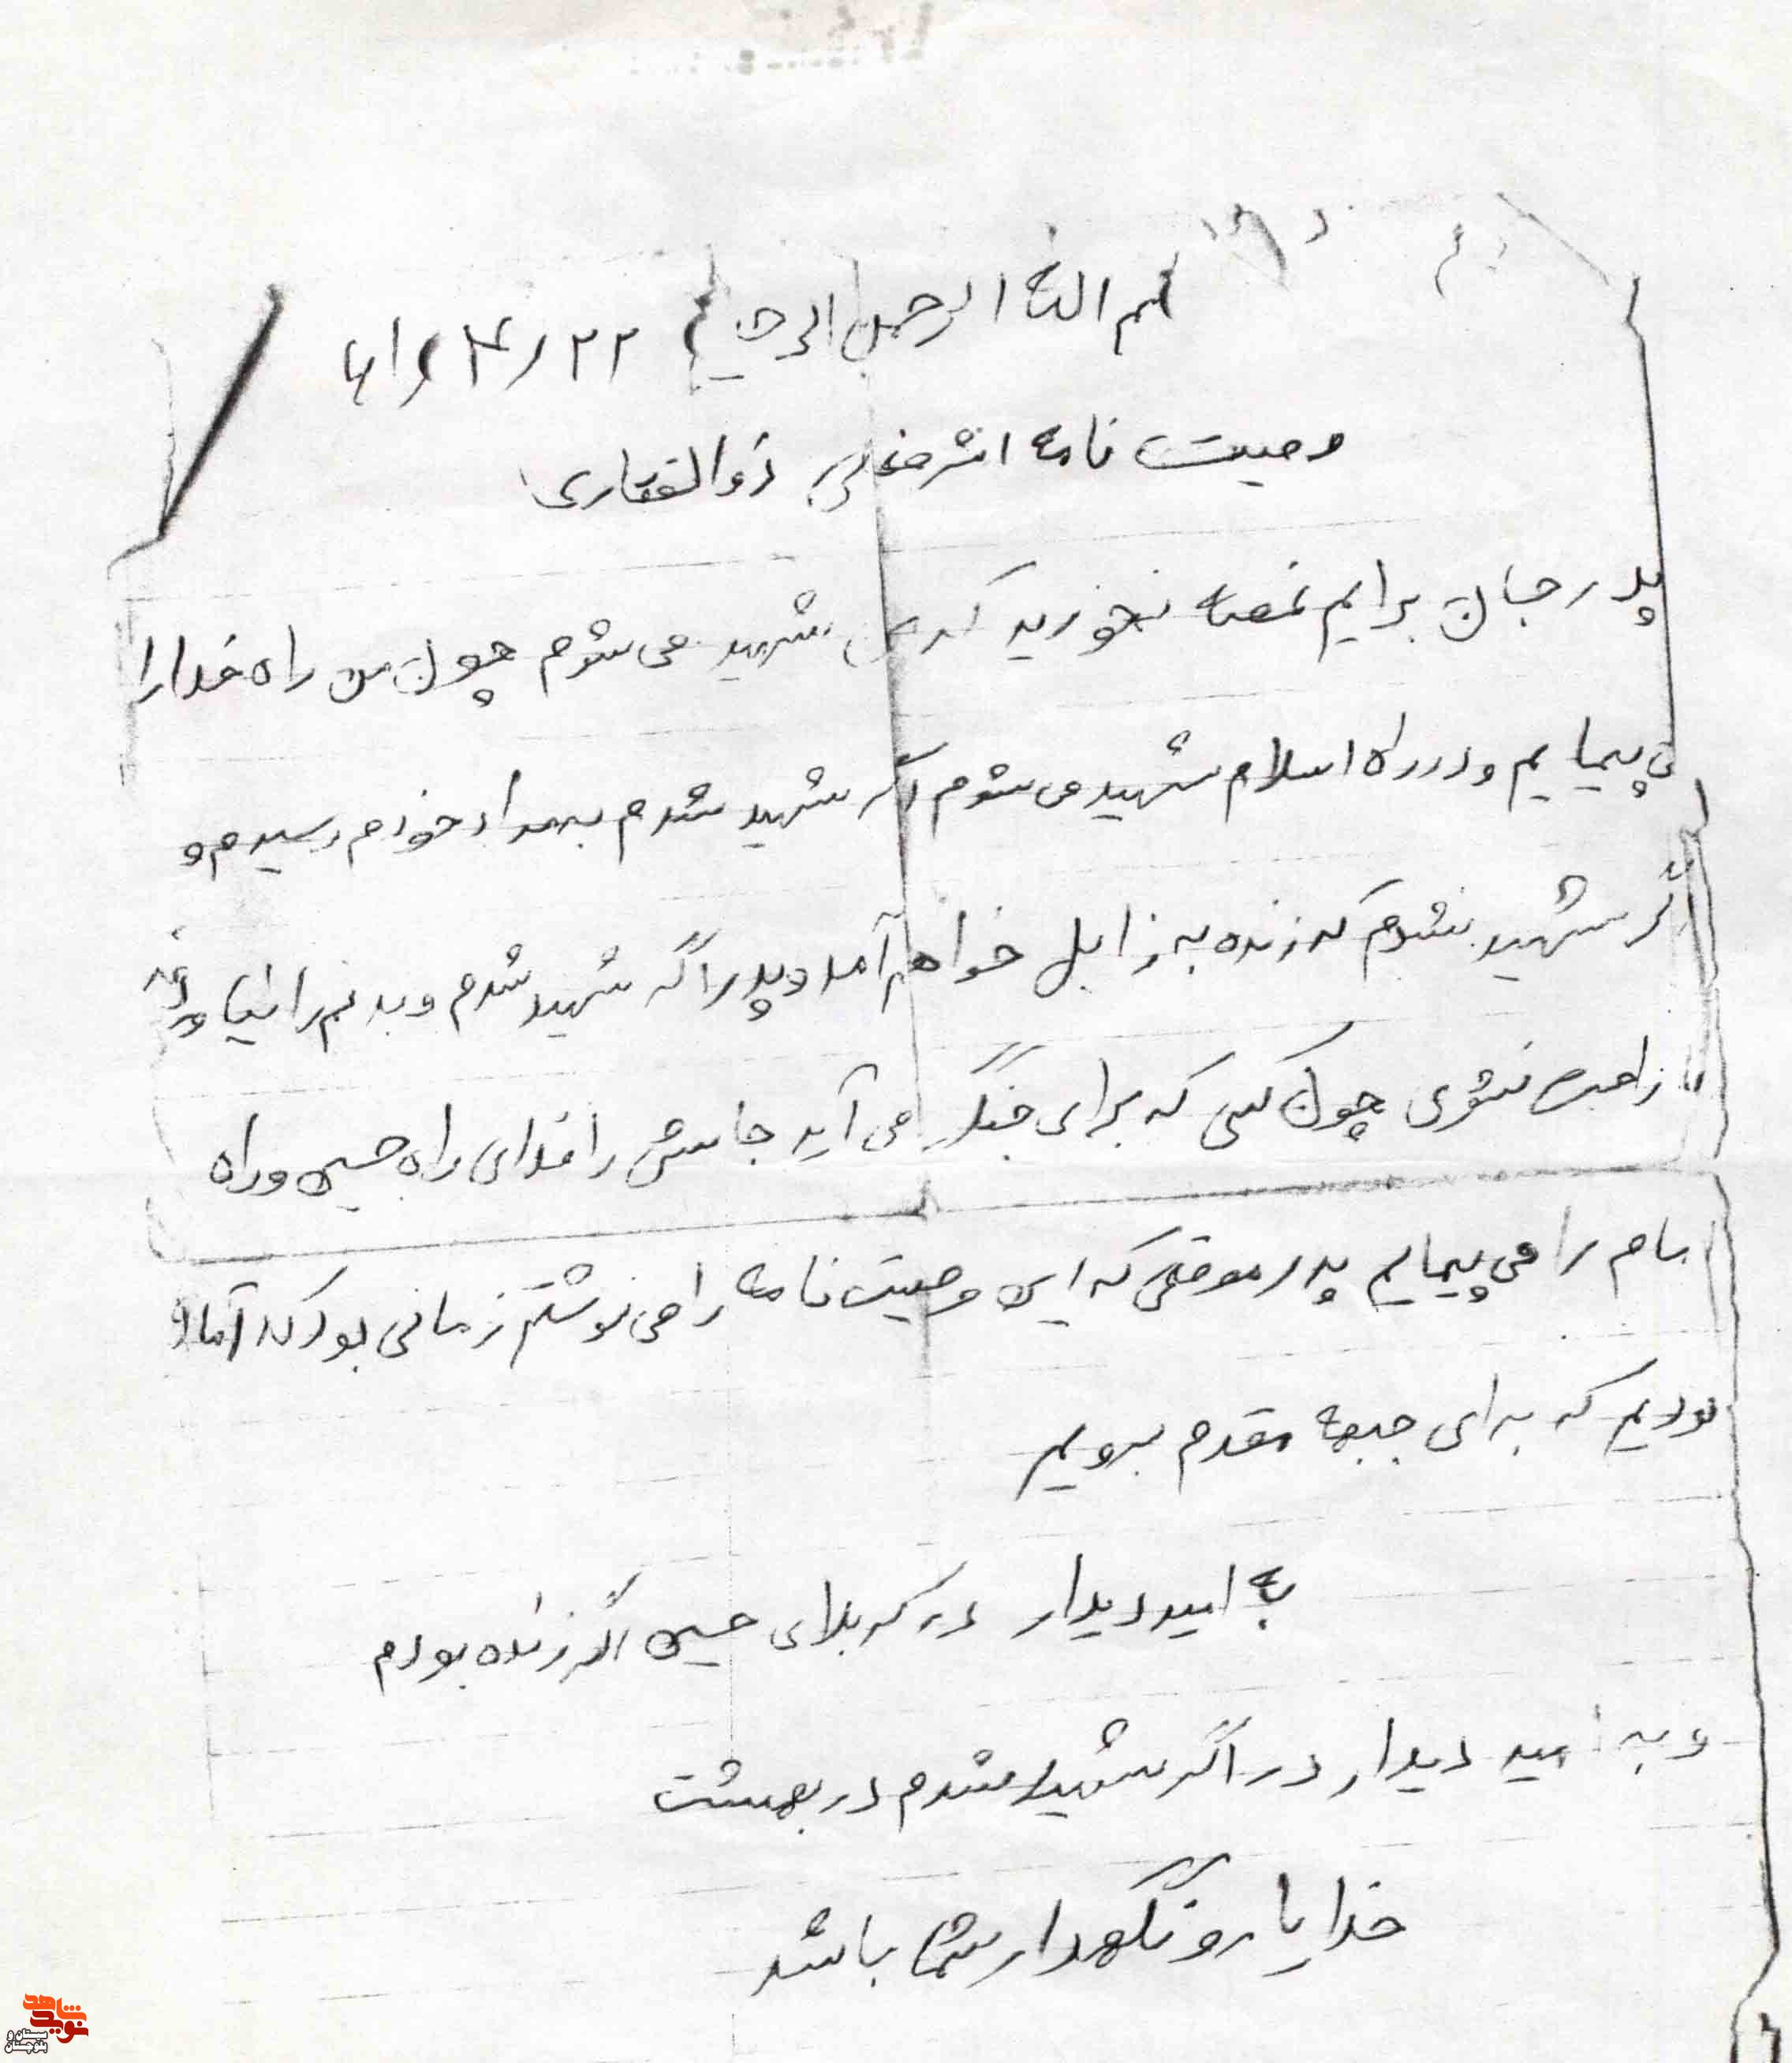 بسم الله الرحمن الرحیم ۶۱/۴/۲۲
وصیت نامه اشرفعلی ذوالفقاری
پدر جان برایم غصه نخورید که من شهید می شوم چون من راه خدا را
می پیمایم و در راه اسلام شهید می شوم اگر شهید شدم به مراد خودم رسیدم و
اگر شهید نشدم که زنده به زابل خواهم آمد و پدر اگر شهید شدم و بدنم را نیاوردند
ناراحت نشوی چون کسی که برای جنگ می آید جانش را فدای راه حسین و راه
امام را می پیمایم پدر موقعی که این وصیت نامه را می نوشتم زمانی بود که آماده
بودیم که برای جبهه مقدم برویم
به امید دیدار در کربلای حسین اگر زنده بودم
و به امید دیدار در اگر شهید شدم در بهشت
خدا یار و نگهدار شما باشد
نوید شاهد
سیستان و
بلوچستان